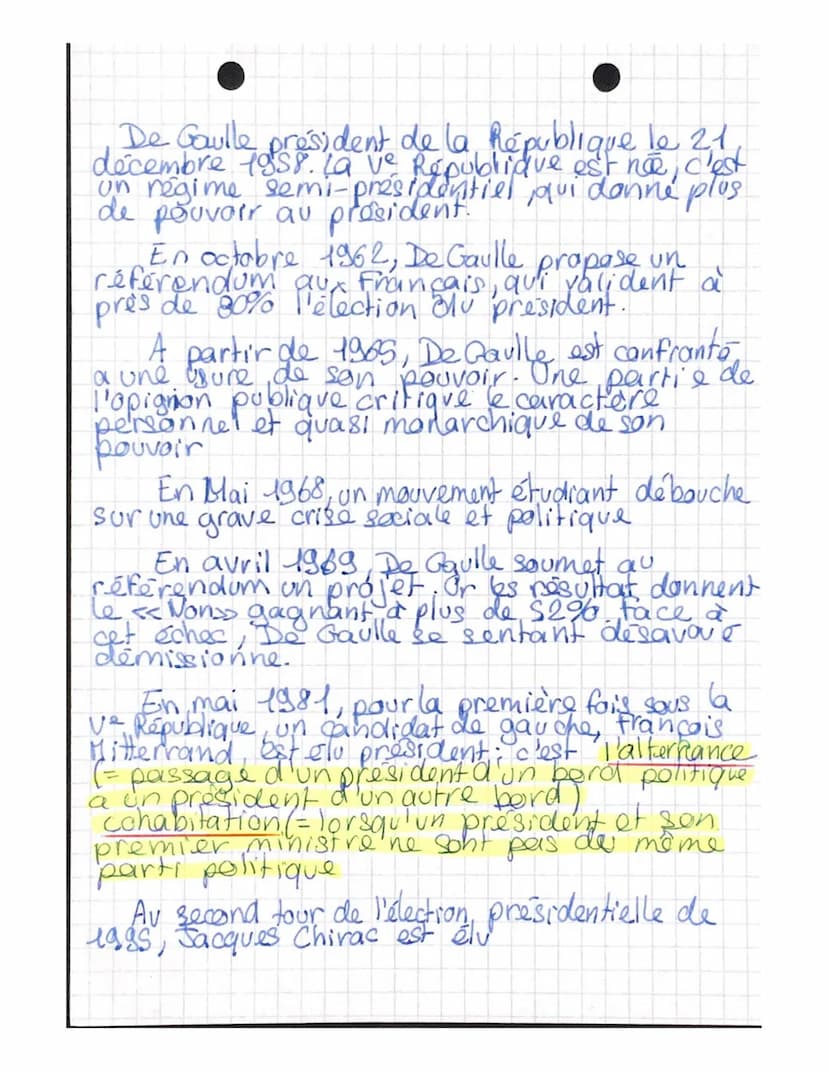 De Gaulle président de la République le 21
décembre 1958. La Ve République est née, c'est
un régime semi-présidentiel, qui donne plus
de pouvoir au président.
En octobre 1962, De Gaulle propose un
référendum aux Français, qui valident à
près de 80% l'élection du président.
A partir de 1965, De Gaulle est confronté
a une usure de son pouvoir. Une partie de
l'opignion publique critique le caractère
personnel et quasi monarchique de son
pouvoir
En Mai 1968, un mouvement étudiant débouche
sur une grave crise sociale et politique
En avril 1969, De Gaulle soumet au
référendum un projet. Or les résultat donnent
le «Non» gagnant à plus de 52%. face à
cet échec, De Gaulle se sentant désavoué
démissionne.
En mai 1981, pour la première fois sous la
Ve République, un candidat de gauche, François
Mitterrand, est élu président; c'est l'alternance
(= passage d'un président d'un bord politique
a un président d'un autre bord)
cohabitation (= lorsqu'un président et son
premier ministre ne sont pas du même
parti politique
Au second tour de l'élection présidentielle de
1995, Jacques Chirac est élu